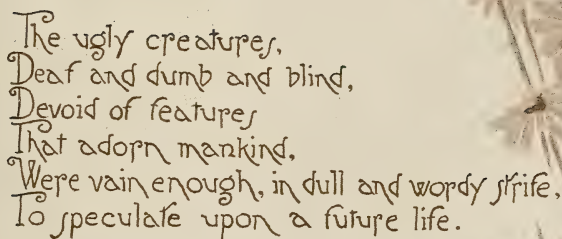 The ugly creatures,
Deaf and dumb and blind,
Devoid of features
That adorn mankind,
Were vain enough, in dull and wordy strife,
To speculate upon a future life.